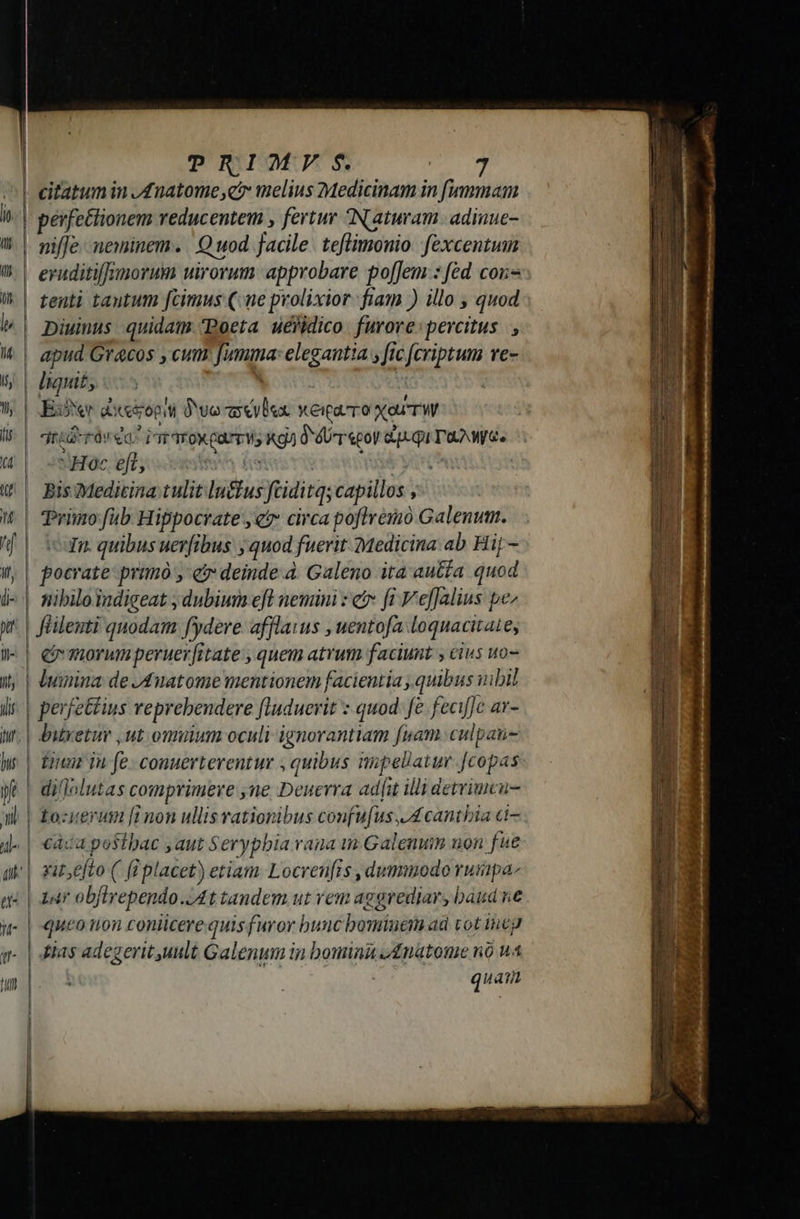 PRIMVS. 7
citatum in Anatome, & melius Medicinam in ſummam
perfectionem reducentem, fertur Naturam adinue-
niſſe neminem. Quod facile teſtimonio ſexcentum
eruditiſſimorum uirorum approbare poſſem: ſed con-
tenti tantum ſcimus (ne prolixior fiam) illo, quod
Diuinus quidam Poeta ueridico furore percitus,
apud Græcos, cum ſumma elegantia, ſic ſcriptum re-
liquit,
Hoc eſt,
Bis Medicina tulit luctus ſciditq; capillos,
Primo ſub Hippocrate, & circa poſtremò Galenum.
In quibus uerſibus, quod fuerit Medicina ab Hip-
pocrate primò, & deinde à Galeno ita aucta quod
nihilo indigeat, dubium eſt nemini: & ſi Veſſalius pe-
ſtilenti quodam ſydere afflatus, uentoſa loquacitate,
& morum peruerſitate, quem atrum faciunt, eius uo-
lumina de Anatome mentionem facientia, quibus nihil
perfectius reprehendere ſtuduerit: quod ſe feciſſe ar-
bitretur, ut omnium oculi ignorantiam ſuam culpan-
tium in ſe conuerterentur, quibus impellatur ſcopas
diſſolutas comprimere, ne Deuerra adſit illi detrimen-
to: uerum ſi non ullis rationibus confuſus, Acanthia ci-
cada poſthac, aut Seryphia rana in Galenum non fue
rit, eſto (ſi placet) etiam Locrenſis, dummodo rumpa-
tur obſtrependo. At tandem ut rem aggrediar, haud ne
queo non coniicere quis furor hunc hominem ad tot inep
tias adegerit, uult Galenum in hominũ Anatome nō uſ
quam